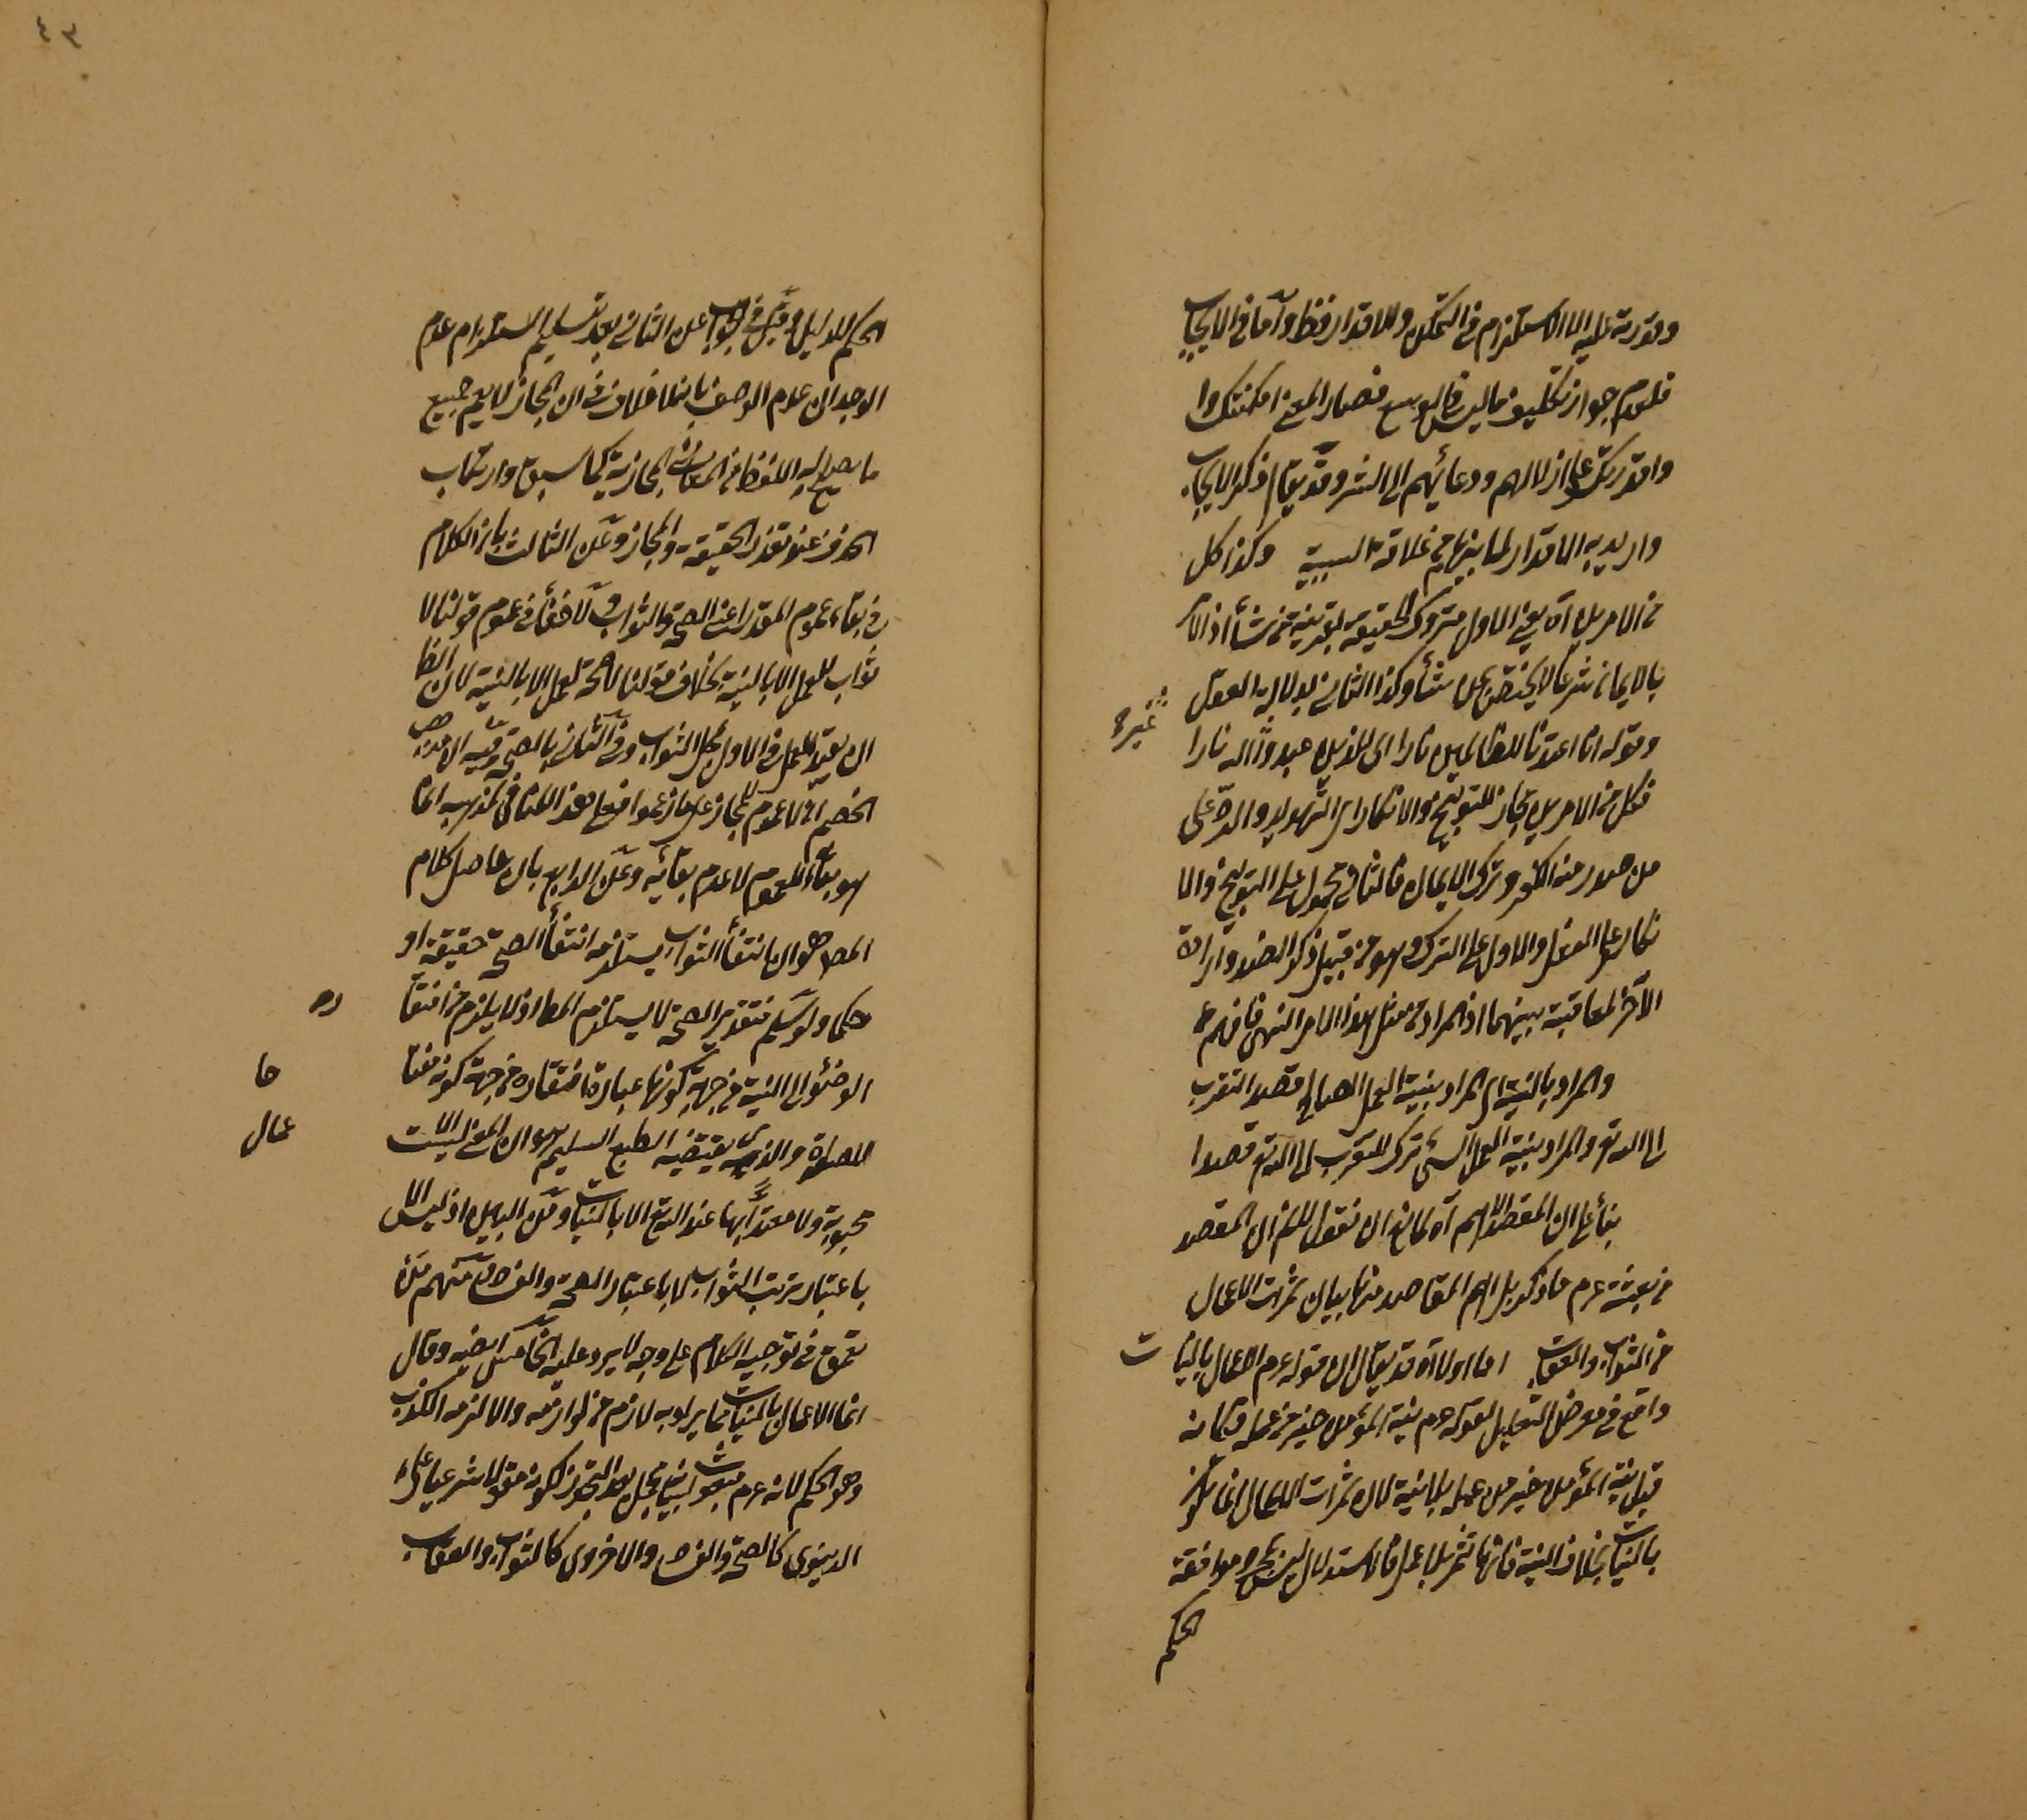 وقدرته عليه اما الاستلزام في التمكن والاقدار فظ واما في الايجاب
فلعدم جواز تكليف ما ليس في الوسع فصار المعنى امكنتك وا
واقدرتك على ازلالهم ودعائهم الى الشر وقد يقام ذكر الايجاب
واريد به الاقدار لما بينهما من علاقة السببية وكذا كل
من الامرين اه يعني الاول متروك الحقيقة بقرينة من شأ اذ الامر
بالايمان شرعا لا يختص بمن شأ وكذا الثاني بدلالة العقل
غيره
وقوله انا اعتدنا للظالمين نارا اي للذين عبدوا اله نارا
فكل من الامرين مجاز للتوبيخ والانكار اي التهديد والرد على
من صدر منه الكفر وترك الايمان فالثاني محمول على التوبيخ والا
نكار على الفعل والاول على الترك وهو من قبيل ذكر الضد وارادة
الآخر لمعاقبة بينهما اذ المراد من مثل هذا الامر النهي فافهم
والمراد بالنية اي المراد بنية العمل الصالح قصد التقرب
الى الله تع والمراد بنية العمل السئ ترك التقرب الى الله تع قصدا
بناء على ان المقصد الاهم اه لمانع ان نقول لانم ان المقصد
من بعثته عم ما ذكر بل اهم المقاصد منها بيان ثمرات الاعمال
من الثواب والعقاب اما اولا اه قد يقال ان قوله عم الاعمال بالنيات
واقع في معرض التعليل لقوله عم نية المؤمن خير من عمله فكانه
قيل نية المؤمن خير من عمله بلا نية لان ثمرات الاعمال انما تكون
بالنيات بخلاف النية فانها تثمر بلا عمل فالاستدلال ليس بمجرد موافقة
الحكم
٤٣
الحكم للدليل وقيل في الجواب عن الثاني بعد تسليم استلزام عدم
الوجدان عدم الوصف بانه لا خلاف في ان المجاز لا يعم جميع
ما يصلح له اللفظ من المعاني المجازية كما سبق وارتكاب
الحذف عند تعذر الحقيقة والمجاز وعن الثالث بان الكلام
في بقاء عموم المقدر اعني الصحة والثواب ولا خفأ في عموم قولنا لا
ثواب لعمل الا بالنية بخلاف قولنا لا صحة لعمل الا بالنية لان الظا
ان يقيد العمل في الاول بمحل الثواب وفي الثاني بالصحة وفيه ان مذهب
الخصم ان لا عموم للمجاز على ما زعموا فعلى هذا المنافي لمذهبه انما
هو بقاء العموم لا عدم بقائه وعن الرابع بان حاصل كلام
المصـ هو ان انتفأ الثواب يستلزم انتفأ الصحة حقيقة او
حكما ولو سلم فتقدير الصحة لا يستلزم المطا اذ لا يلزم من افتقا
ره
الوضوء الى النية من جهة كونها عبادة افتقاره من جهة كونه مفتا
حا
للصلوة والذي يقتضيه الطبع السليم هو ان المعنى ليست الا
عمال
محبوبة ولا معتدا بها عند الله تع الا بالنيات ومن البين اذ ليس الا
باعتبار ترتب الثواب لا باعتبار الصحة والفساد منهم من
تعمق في توجيه الكلام على وجه لا يرد عليه الخامس ايضا وقال
انما الاعمال بالنيات مما يراد به لازم من لوازمه والا لزمه الكذب
وهو الحكم لانه عم مبعوث لبيانه فحمل بعد التجوز لكونه مقولا شرعيا على
الدنيوي كالصحة والفساد والاخروي كالثواب والعقاب